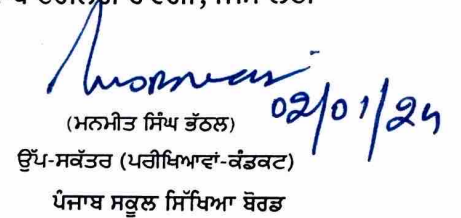 02/01/24
(ਮਨਮੀਤ ਸਿੰਘ ਭੱਠਲ)
ਉੱਪ-ਸਕੱਤਰ (ਪਰੀਖਿਆਵਾਂ-ਕੰਡਕਟ)
ਪੰਜਾਬ ਸਕੂਲ ਸਿੱਖਿਆ ਬੋਰਡ